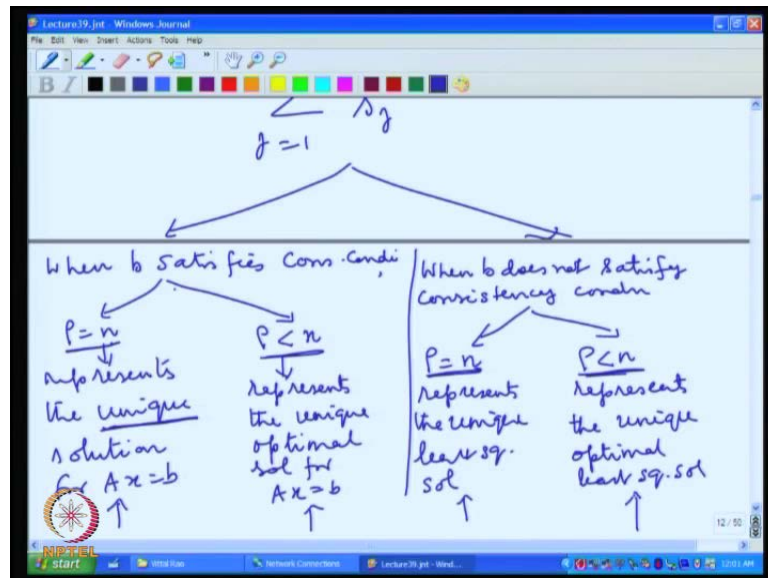 Lecture39.jnt - Windows Journal
File Edit View Insert Actions Tools Help
B I
s_j
j = 1
When b satisfies Cons. condi
ρ = n
represents
the unique
solution
for Ax = b
ρ < n
represents
the unique
optimal
sol for
Ax = b
When b does not satisfy
consistency condn
ρ = n
represents
the unique
least sq.
sol
ρ < n
represents
the unique
optimal
least sq. sol
12 / 50
NPTEL
start Vittal Rao Network Connections Lecture39.jnt - Wind... 12:01 AM